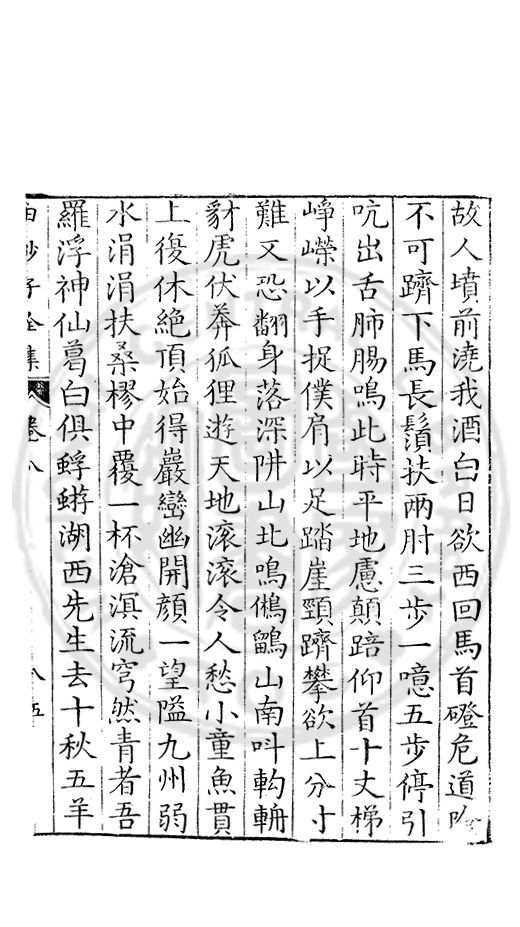 故人墳前澆我酒白日欲西回馬首磴危道
不可躋下馬長鬚扶兩肘三步一噫五步停引
吭出舌肺腸鳴此時平地慮顛踣仰首十丈梯
崢嶸以手捉僕肩以足踏崖頸躋攀欲上分寸
難又恐翻身落深阱山北鳴鵂鶹山南呌軥輈
豺虎伏莽狐狸遊天地滾滾令人愁小童魚貫
上復休絶頂始得巖巒幽開顔一望隘九州弱
水涓涓扶桑樛中覆一杯滄溟流穹然青者吾
羅浮神仙葛白俱蜉蝣湖西先生去十秋五羊
白沙子全集 卷八 八五